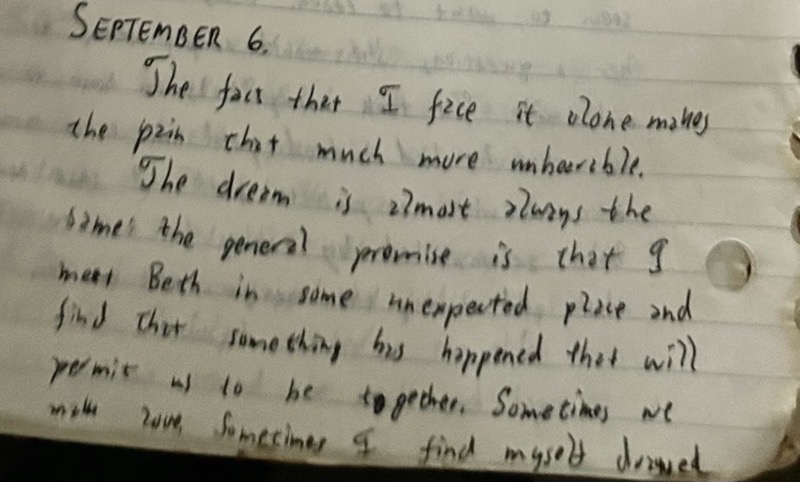 SEPTEMBER 6.
The fact that I face it alone makes
the pain that much more unbearable.
The dream is almost always the
same: the general promise is that I
meet Beth in some unexpected place and
find that something has happened that will
permit us to be together. Sometimes we
make love, Sometimes I find myself